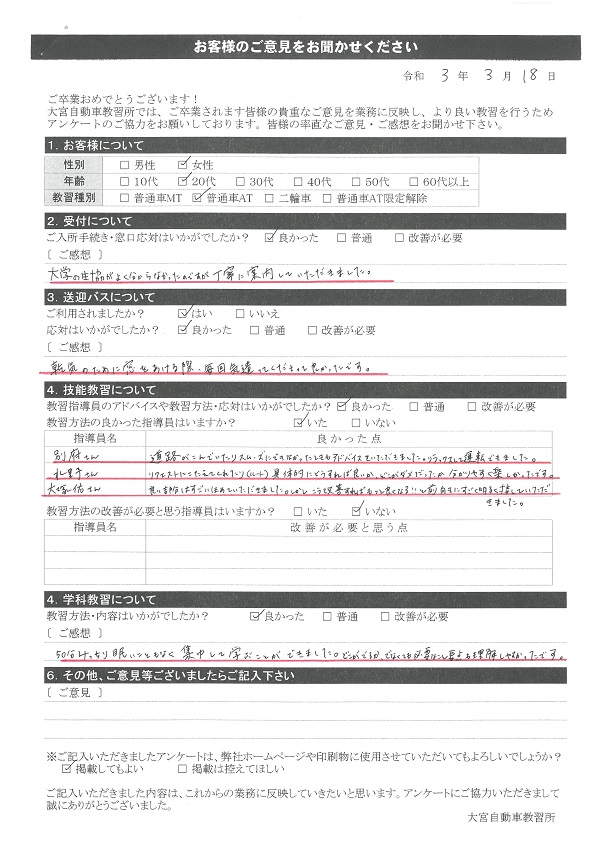 お客様のご意見をお聞かせください
令和 3 年 3 月 18 日
ご卒業おめでとうございます！
大宮自動車教習所では、ご卒業されます皆様の貴重なご意見を業務に反映し、より良い教習を行うため
アンケートのご協力をお願いしております。皆様の率直なご意見・ご感想をお聞かせ下さい。
1. お客様について
性別 □ 男性 ☑ 女性
年齢 □ 10代 ☑ 20代 □ 30代 □ 40代 □ 50代 □ 60代以上
教習種別 □ 普通車MT ☑ 普通車AT □ 二輪車 □ 普通車AT限定解除
2. 受付について
ご入所手続き・窓口応対はいかがでしたか？ ☑ 良かった □ 普通 □ 改善が必要
〔 ご感想 〕
大学の生協がよく分からなかったのですが丁寧に案内していただきました。
3. 送迎バスについて
ご利用されましたか？ ☑ はい □ いいえ
応対はいかがでしたか？ ☑ 良かった □ 普通 □ 改善が必要
〔 ご感想 〕
換気のために窓をあける際、毎回気遣ってくださって良かったです。
4. 技能教習について
教習指導員のアドバイスや教習方法・応対はいかがでしたか？ ☑ 良かった □ 普通 □ 改善が必要
教習方法の良かった指導員はいますか？ ☑ いた □ いない
指導員名 良かった点
別府さん 道路がこんでいたりスムーズにできなかったときもアドバイスをいただきました。リラックスして運転できました。
リクエストにこたえてくれたり(ルート)具体的にどうすれば良いか、どこがダメだったか分かりやすく楽しかったです。
大塚佑さん 良い部分はすごいほめていただきました。しかし、こう改善すればもっと良くなる!!と前向きにすごく明るく接していただ
きました。
教習方法の改善が必要と思う指導員はいますか？ □ いた ☑ いない
指導員名 改善が必要と思う点
4. 学科教習について
教習方法・内容はいかがでしたか？ ☑ 良かった □ 普通 □ 改善が必要
〔 ご感想 〕
50分みっちり眠いこともなく集中して学ぶことができました。どこがでるか、でなくても必要なこと要点も理解しやすかったです。
6. その他、ご意見等ございましたらご記入下さい
〔 ご意見 〕
※ご記入いただきましたアンケートは、弊社ホームページや印刷物に使用させていただいてもよろしいでしょうか？
☑ 掲載してもよい □ 掲載は控えてほしい
ご記入いただきました内容は、これからの業務に反映していきたいと思います。アンケートにご協力いただきまして
誠にありがとうございました。
大宮自動車教習所